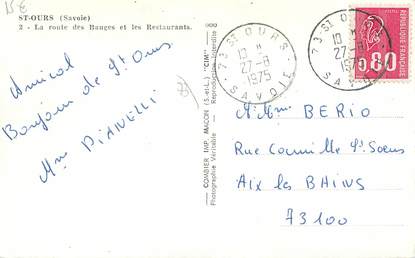 15 E
ST-OURS (Savoie)
2 - La route des Bauges et les Restaurants.
Amical
Bonjour de St Ours
Mme PIANELLI
COMBIER IMP. MACON (S.-et-L.) "CIM"
Photographie Véritable — Reproduction Interdite
73 ST OURS
10 H
27-8
1975
SAVOIE
73 ST OURS
10 H
27-8
1975
SAVOIE
0,80
Mme BERIO
Rue Camille St Saens
Aix les BAINS
73100